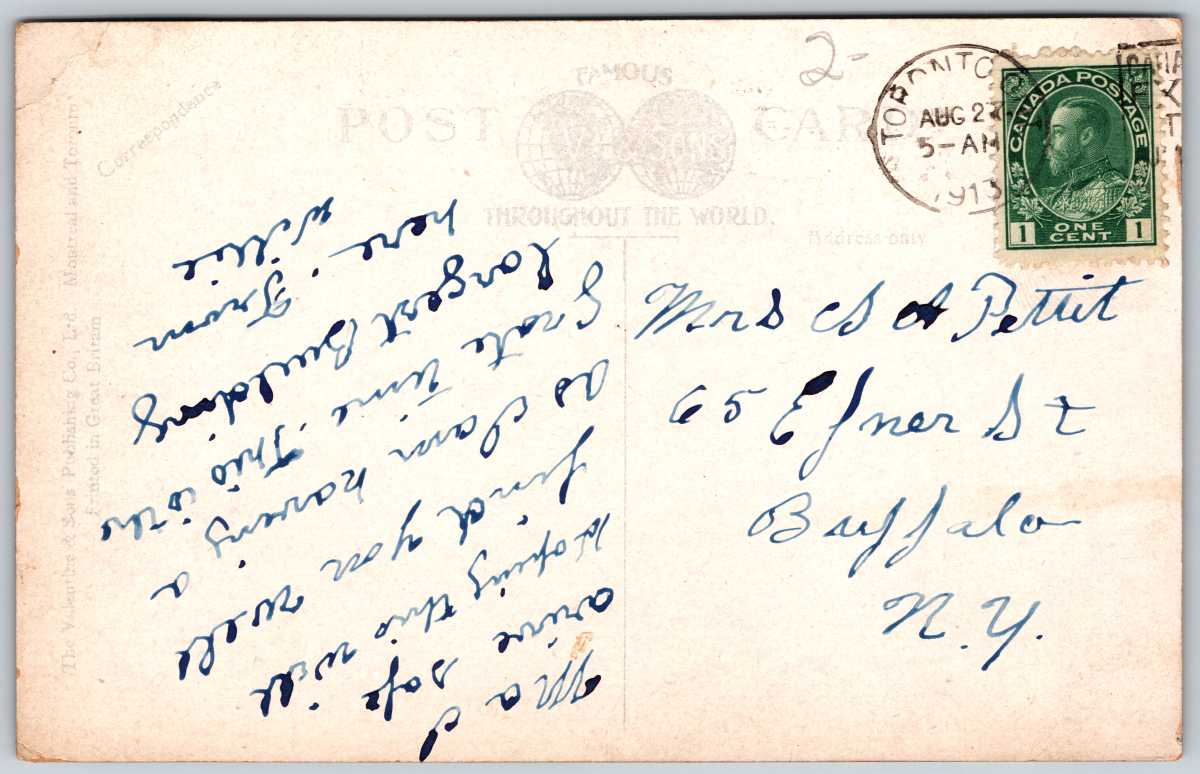 FAMOUS
POST CARD
THROUGHOUT THE WORLD.
Correspondence
Address only
The Valentine & Sons Publishing Co., Ltd. Montreal and Toronto
Printed in Great Britain
2-
TORONTO
AUG 27
5-AM
1913
CANADA POSTAGE
1 ONE CENT 1
Ma I
arive safe
Hoping this will
find you well
as I am having a
Grate time This is the
largest Building
here. From
Willie
Mrs S A Pettit
65 Efner St
Buffalo
N.Y.